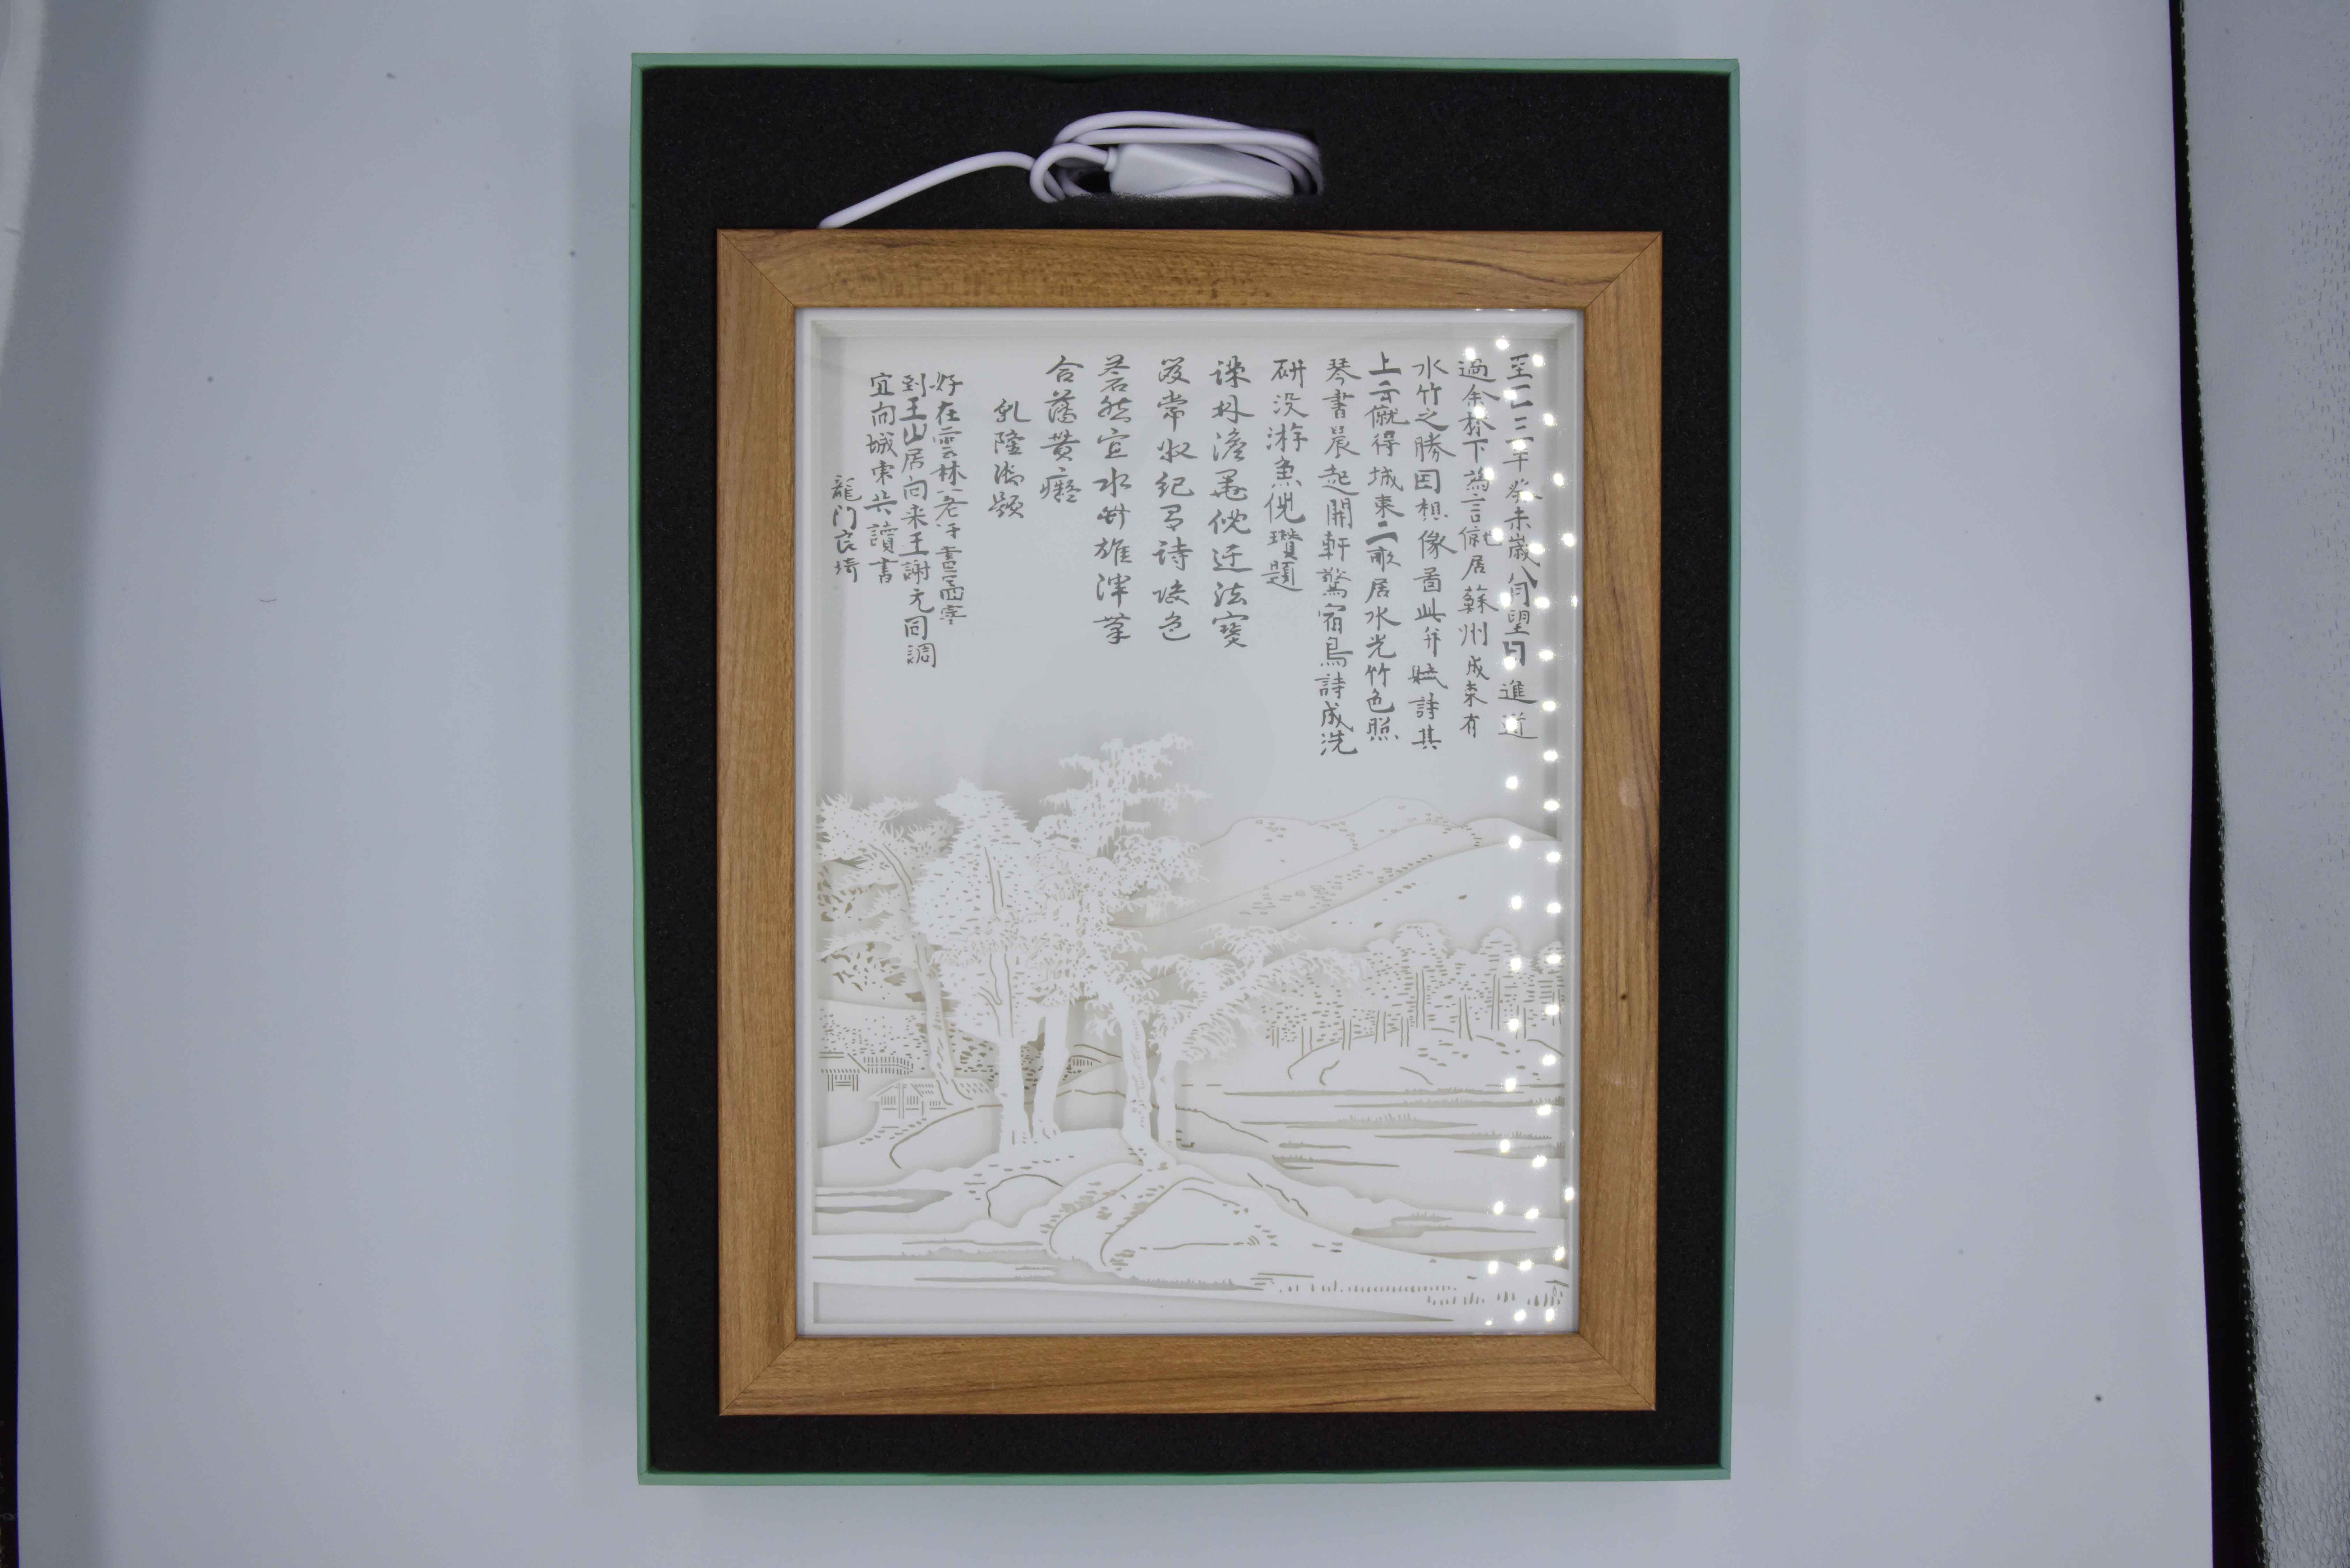 至正三年癸未歲八月望日進道
過余林下為言僦居蘇州城東有
水竹之勝因想像圖此并賦詩其
上云僦得城東二畝居水光竹色照
琴書晨起開軒驚宿鳥詩成洗
研没游魚倪瓚題
疎林澹墨倪迂法寶
笈常收紀詩設色
居然宜水竹雄渾筆
合黄癡
乾隆御題
好在雲林老
到王山居向来王謝元同調
宜向城東共讀書
龍门良琦